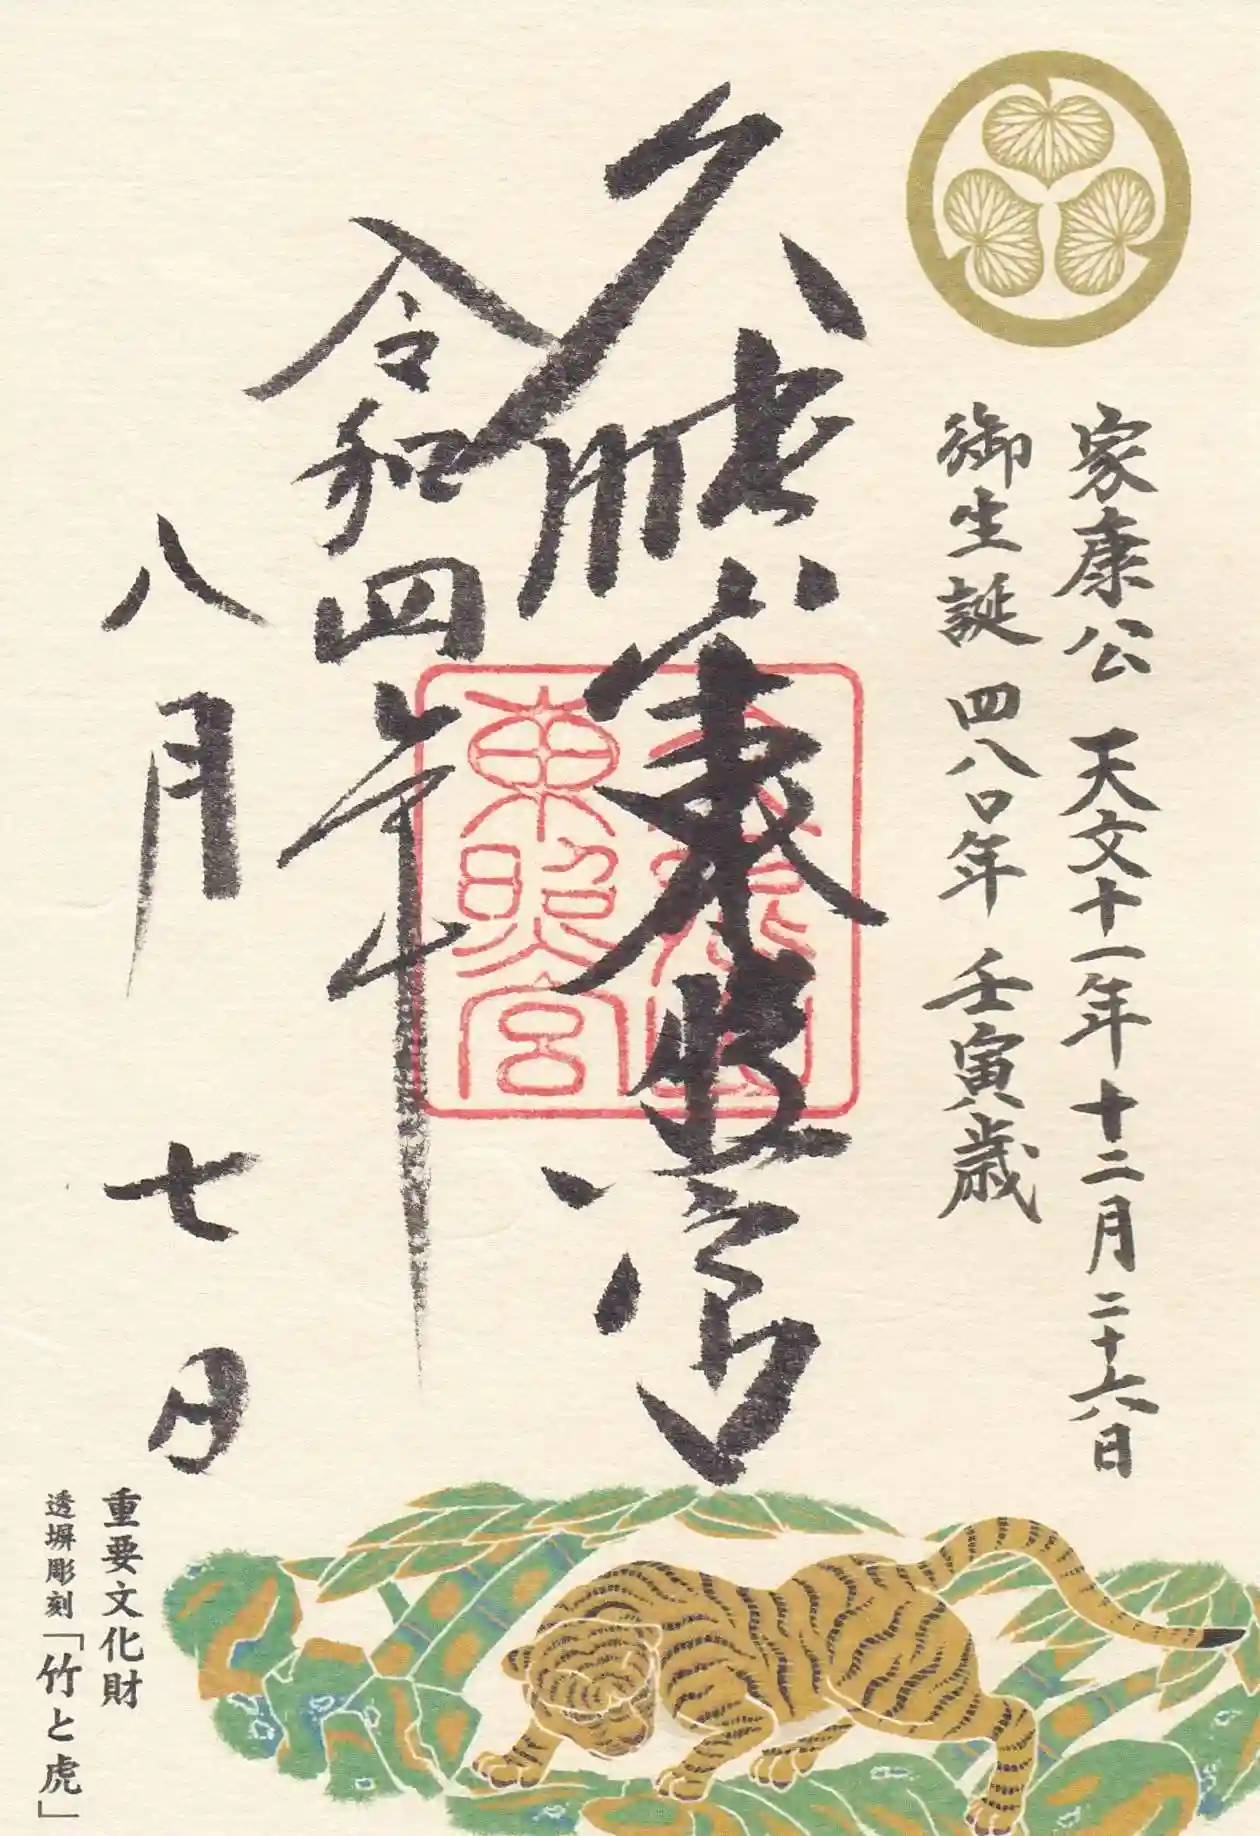 家康公 天文十一年十二月二十六日
御生誕 四八〇年 壬寅歳
久能山東照宮
東照宮
令和四年
八月七日
重要文化財
透塀彫刻「竹と虎」